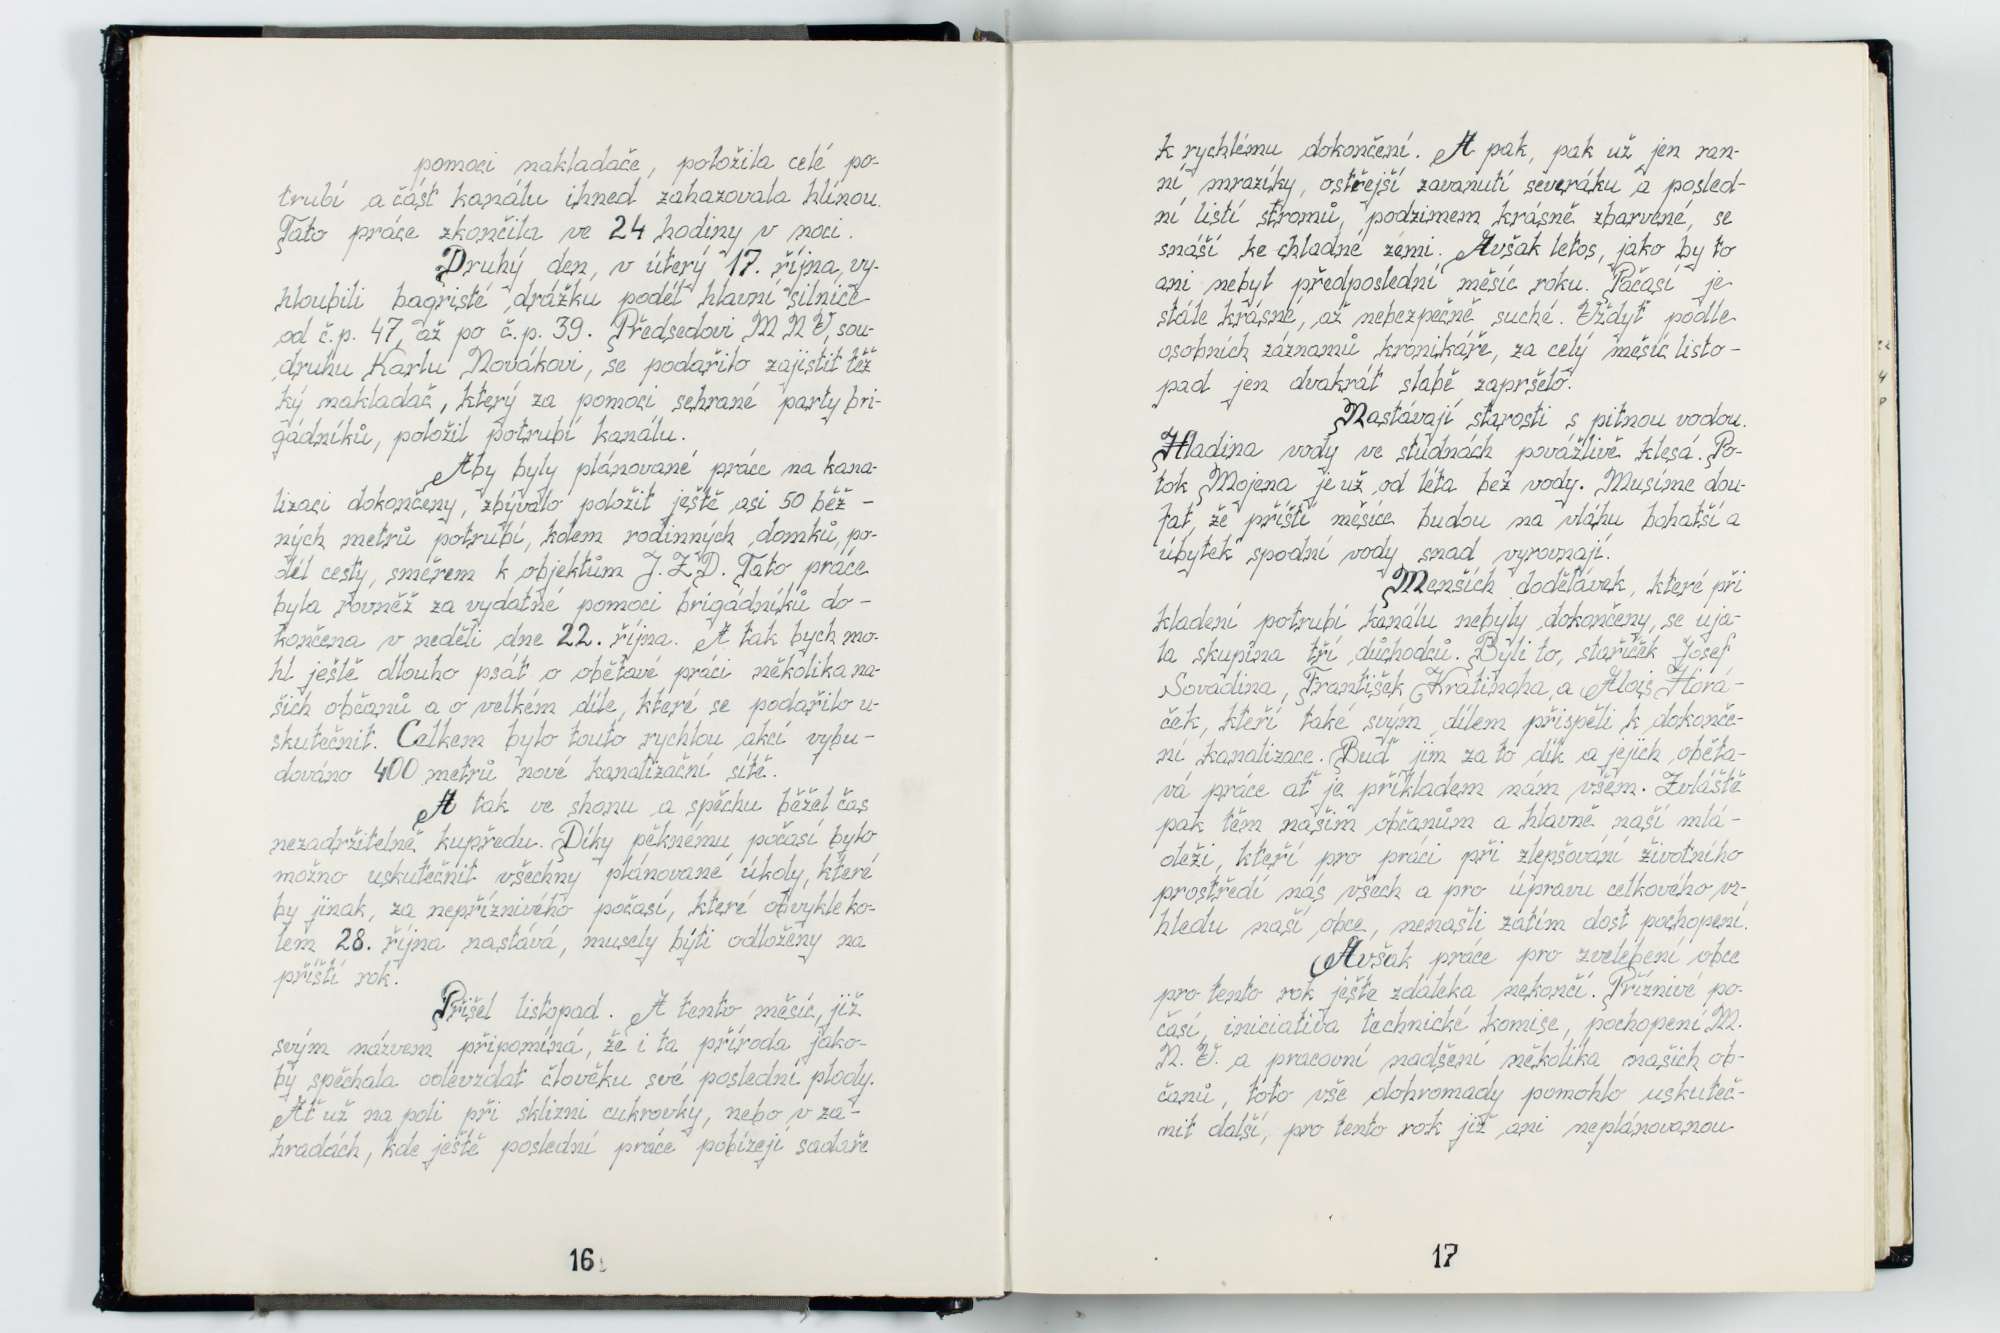 pomoci nakladače, položila celé po-
trubí a část kanálu ihned zahazovala hlínou.
Tato práce zkončila ve 24 hodiny v noci.
Druhý den, v úterý 17. října, vy-
hloubili bagristé drážku podél hlavní silnice
od č.p. 47, až po č.p. 39. Předsedovi M N V, sou-
druhu Karlu Novákovi, se podařilo zajistit těž
ký nakladač, který za pomoci sehrané party bri-
gádníků, položil potrubí kanálu.
Aby byly plánované práce na kana-
lizaci dokončeny, zbývalo položit ještě asi 50 běž-
ných metrů potrubí, kolem rodinných domků, po-
dél cesty, směrem k objektům J.Z.D. Tato práce
byla rovněž za vydatné pomoci brigádníků do-
končena v neděli dne 22. října. A tak bych mo-
hl ještě dlouho psát o obětavé práci několika na-
šich občanů a o velkém díle, které se podařilo u-
skutečnit. Celkem bylo touto rychlou akcí vybu-
dováno 400 metrů nové kanalizační sítě.
A tak ve shonu a spěchu běžel čas
nezadržitelně kupředu. Díky pěknému počasí bylo
možno uskutečnit všechny plánované úkoly, které
by jinak, za nepříznivého počasí, které obvykle ko-
lem 28. října nastává, musely býti odloženy na
příští rok.
Přišel listopad. A tento měsíc, již
svým názvem připomíná, že i ta příroda jako-
by spěchala odevzdat člověku své poslední plody.
Ať už na poli při sklizni cukrovky, nebo v za-
hradách, kde ještě poslední práce pobízejí sadaře
16
k rychlému dokončení. A pak, pak už jen ran-
ní mrazíky, ostřejší zavanutí severáku a posled-
ní listí stromů, podzimem krásně zbarvené, se
snáší ke chladné zemi. Avšak letos, jako by to
ani nebyl předposlední měsíc roku. Počasí je
stále krásné, až nebezpečně suché. Vždyť podle
osobních záznamů kronikáře, za celý měsíc listo-
pad jen dvakrát slabě zapršelo.
Nastávají starosti s pitnou vodou.
Hladina vody ve studnách povážlivě klesá. Po-
tok Mojena je už od léta bez vody. Musíme dou-
fat, že příští měsíce budou na vláhu bohatší a
úbytek spodní vody snad vyrovnají.
Menších dodělávek, které při
kladení potrubí kanálu nebyly dokončeny, se uja-
la skupina tří důchodců. Byli to, stařiček Josef
Sovadina, František Kratinoha, a Alois Horá-
ček, kteří také svým dílem přispěli k dokonče-
ní kanalizace. Buď jim za to dík a jejich oběta-
vá práce ať je příkladem nám všem. Zvláště
pak těm našim občanům a hlavně naší mlá-
deži, kteří pro práci při zlepšování životního
prostředí nás všech a pro úpravu celkového vz-
hledu naší obce, nenašli zatím dost pochopení.
Avšak práce pro zvelebení obce
pro tento rok ještě zdaleka nekončí. Příznivé po-
časí, iniciativa technické komise, pochopení M.
N. V. a pracovní nadšení několika našich ob-
čanů, toto vše dohromady pomohlo uskuteč-
nit další, pro tento rok již ani neplánovanou
17